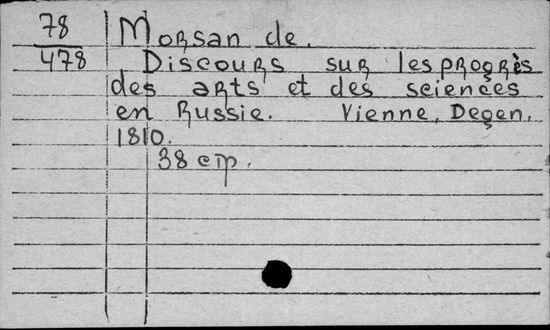 78
478
Morsan de.
Discours sur les progrès
des arts et des sciences
en Russie. Vienne, Degen,
1810.
38 стр.